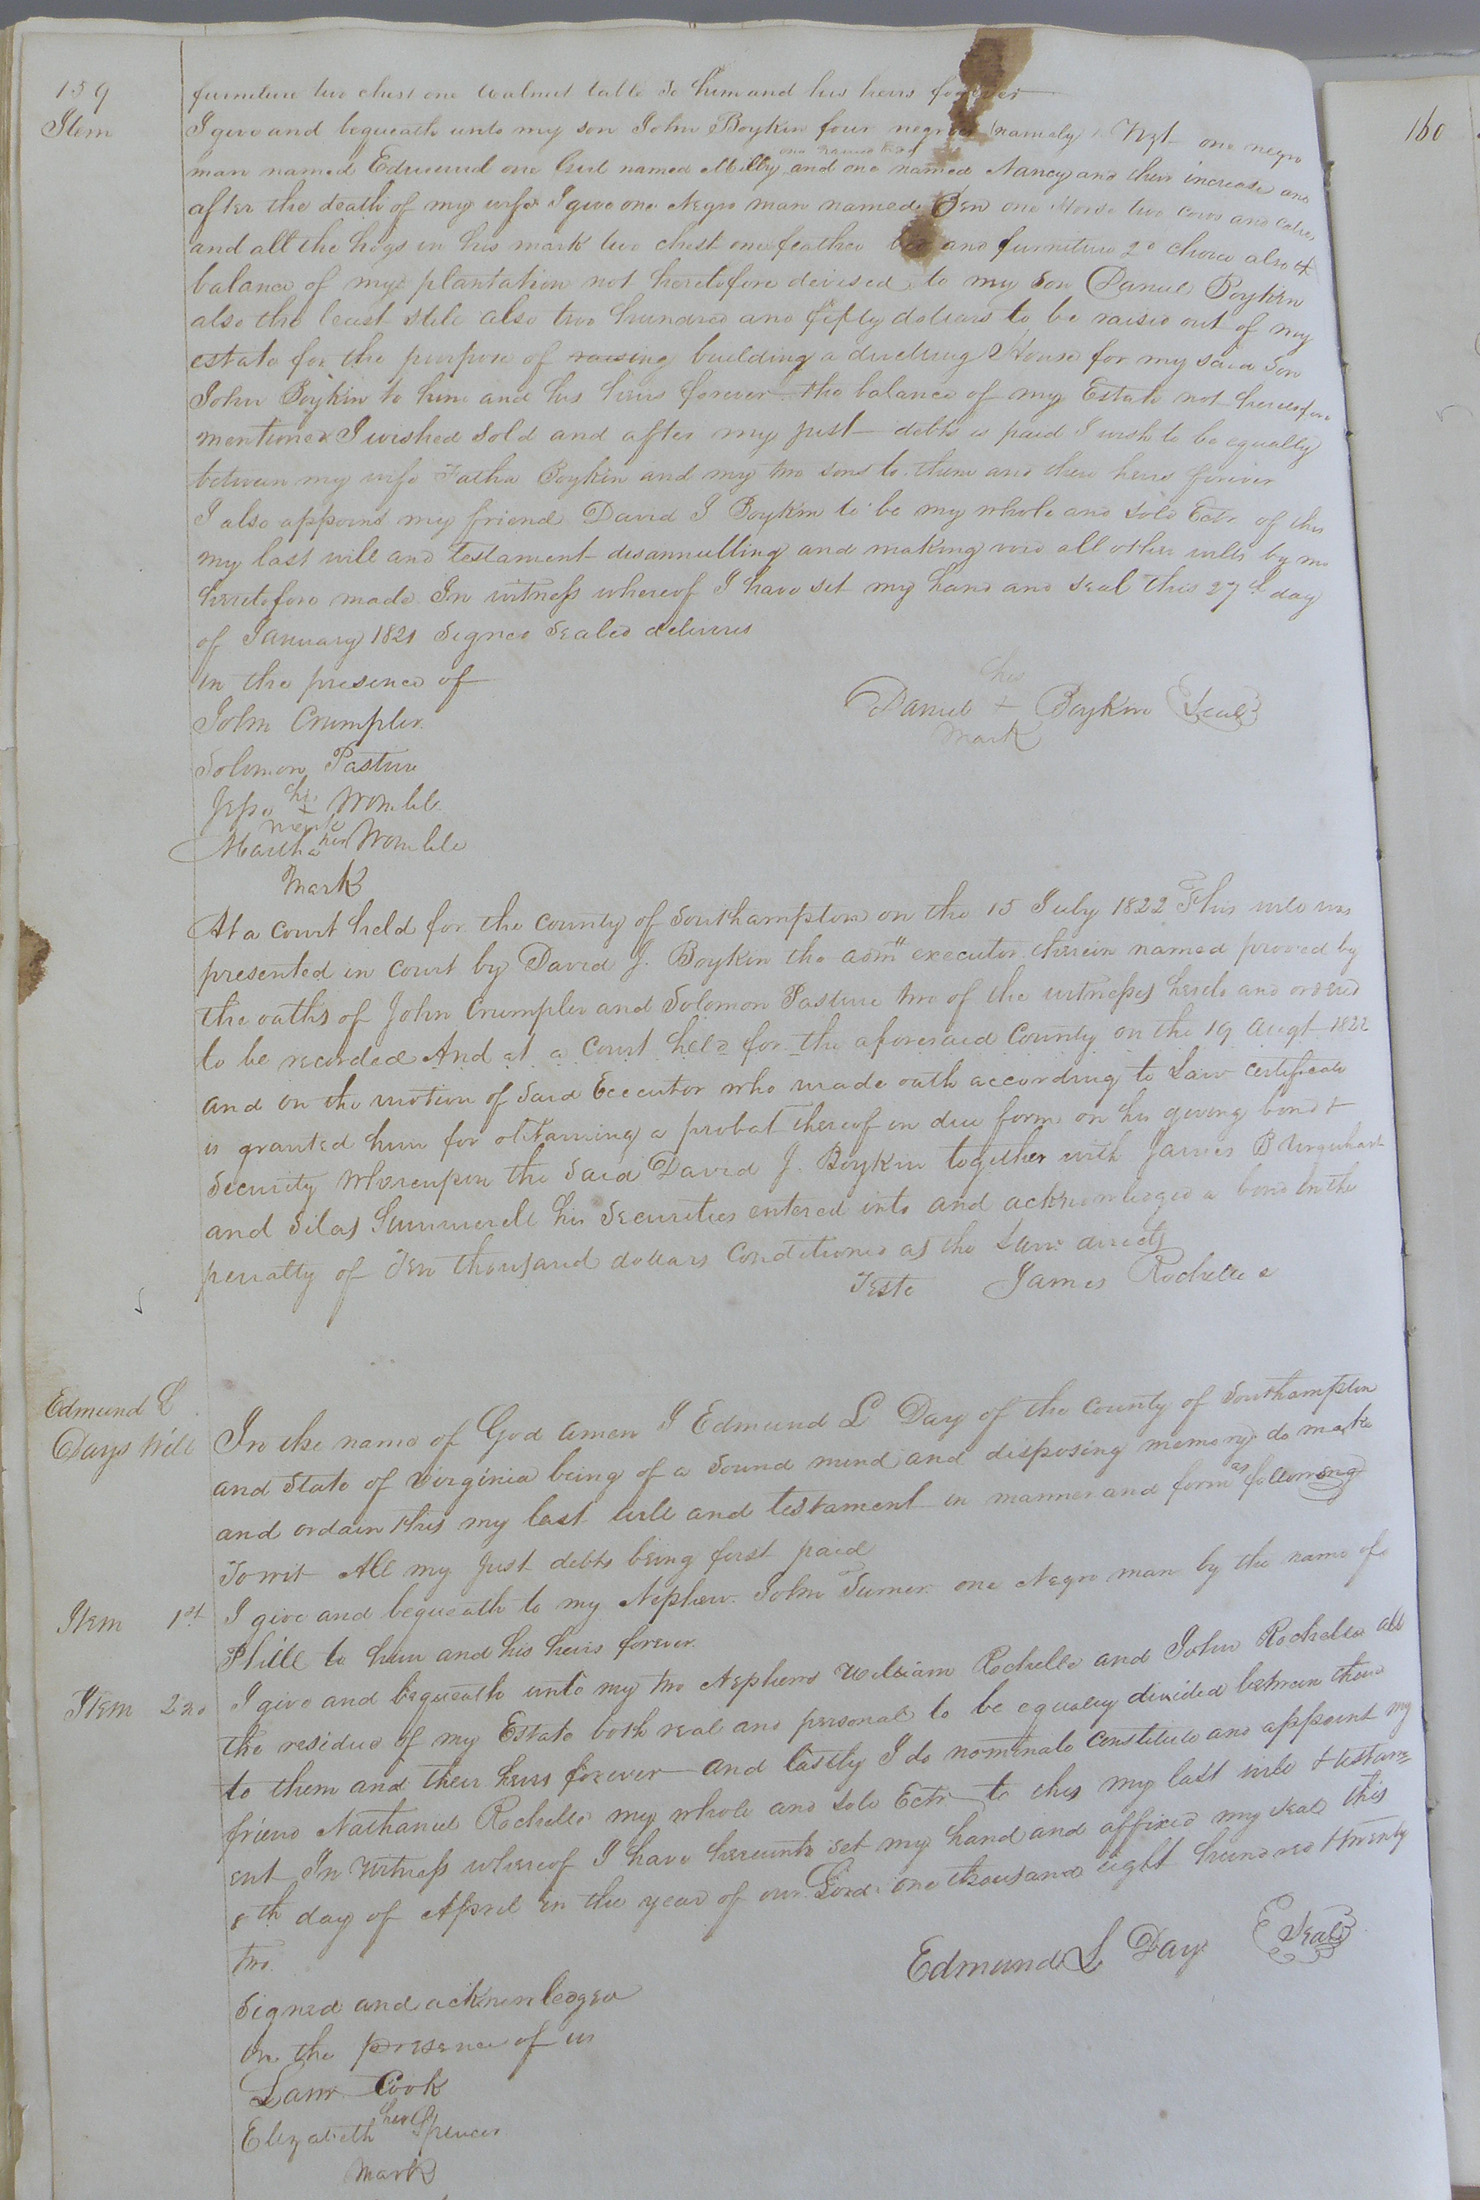 159
furniture two chest one Walnut table to him and his heirs forever
Item I give and bequeath unto my son John Boykin four negroes (namely) Vizt one negro
man named Edmund one Girl named Milly one named and one named Nancy and their increase and
after the death of my wife I give one Negro man named Ben one Horse two cows and calves
and all the hogs in his mark two chest one feather bed and furniture 2d choice also the
balance of my plantation not heretofore devised to my Son Daniel Boykin
also the least Still also two hundred and fifty dollars to be raised out of my
estate for the purpose of raising building a dwelling House for my said Son
John Boykin to him and his heirs forever the balance of my Estate not heretofore
mentioned I wished Sold and after my just debts is paid I wish to be equally
between my wife Fatha Boykin and my two sons to them and their heirs forever
I also appoint my friend David J Boykin to be my whole and Sole Ectr of this
my last will and testament disannulling and making void all other wills by me
heretofore made In witness whereof I have set my hand and seal this 27th day
of January 1821 Signed Sealed delivered
in the presence of
his
Daniel + Boykin (Seal)
mark
John Crumpler
Solomon Pasture
Jesse his + Womble
mark
Martha her Womble
Mark
At a court held for the county of Southampton on the 15 July 1822 This will was
presented in court by David J. Boykin the executor therein named proved by
the oaths of John Crumpler and Solomon Pasture two of the witnesses hereto and ordered
to be recorded And at a Court held for the aforesaid County on the 19 Augt 1822
and on the motion of Said Executor who made oath according to Law certificate
is granted him for obtaining a probat thereof in due form on his giving bond &
Security Whereupon the Said David J. Boykin together with James B Urquhart
and Silas Summerell his Securities entered into and acknowledged a bond in the
penalty of Ten thousand dollars Conditioned as the Law directs
Teste James Rochelle c
Edmund L
Days Will
In the name of God amen I Edmund L Day of the county of Southampton
and State of Virginia being of a Sound mind and disposing memory do make
and ordain this my last will and testament in manner and form as following
To wit All my just debts being first paid
Item 1st I give and bequeath to my Nephew John Turner one Negro man by the name of
Phill to him and his heirs forever
Item 2nd I give and bequeath unto my two Nephews William Rochelle and John Rochelle all
the residue of my Estate both real and personal to be equaly divided between them
to them and their heirs forever and lastly I do nominate constitute and appoint my
friend Nathaniel Rochelle my whole and sole Ectr to this my last will & testam=
ent In Witness whereof I have hereunto set my hand and affixed my seal this
8th day of April in the year of our Lord one thousand eight hundred & twenty
two
Edmund L Day (Seal)
Signed and acknowledged
in the presence of us
Lawr Cook
Elizabeth her Spencer
mark
160